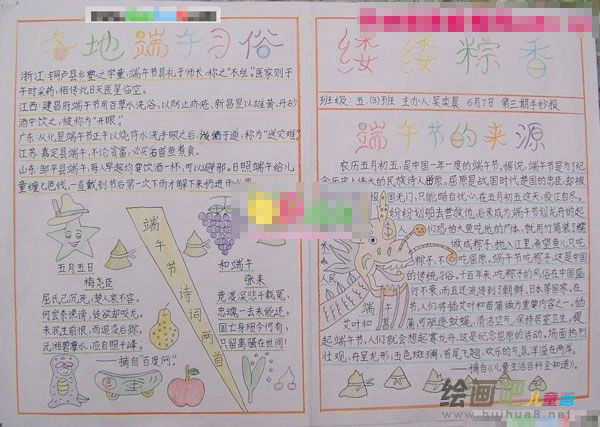 各地端午习俗
浙江:桐庐县乡塾之学童,端午节具礼于师长,称之"衣丝"。医家则于
午时采药,相传此日天医星临空。
江西:建昌府端午节用百草水洗浴,以防止疥疮。新昌县以雄黄、丹砂
酒中饮之,被称为"开眼"。
广东:从化县端午节正午以烧符水洗手眼之后,泼于道,称为"送灾难"。
江苏:嘉定县端午,不论贫富,必买石首鱼煮食。
山东:邹平县端午,每人早起均要饮酒一杯,可以避邪。日照端午给儿
童缠七色线,一直戴到节后第一次下雨才解下来扔进雨水里
端午节诗词两首
五月五日
梅尧臣
屈氏已沉死,楚人哀不容。
何尝奈谗谤,徒欲却蛟龙。
未泯生前恨,而追没后踪。
沅湘碧潭水,应自照千峰
——摘自百度网
和端午
张耒
竞渡深悲千载冤,
忠魂一去讵能还。
国亡身殒今何有,
只留离骚在世间!
缕缕粽香
班级:五(3)班 主办人:吴奕晨 6月7日 第三期手抄报
端午节的来源
农历五月初五,是中国一年一度的端午节。据说,端午节是为了纪
念历史上伟大的民族诗人屈原。屈原是战国时代楚国的忠臣,却被
国无门,只能暗自忧心,在五月初五这天,投江自尽。
纷纷划船去营救他,后来成为端午节划龙舟的起
们恐怕大鱼吃他的尸体,就用竹筒装
做成粽子,抛入江里,希望鱼儿只吃
粽子,不吃屈原。端午节吃粽子,这是中国
的传统习俗,千百年来,吃粽子的风俗在中国盛
行不衰,而且还流传到了朝鲜、日本等国家。在
端午节,人们将插艾叶和菖蒲做为重要内容之一。插
艾叶和菖蒲可驱逐蚊蝇,清洁空气,保持居室卫生。提
起端午节,人们就会想起赛龙舟,这是纪念屈原的活动。场面热烈
壮观,舟呈龙形,五色斑斓,首尾飞翘,欢乐的气氛洋溢在两岸。
——摘自《儿童生活百科全知道》。
绘画吧 儿童画
www.huihua8.net